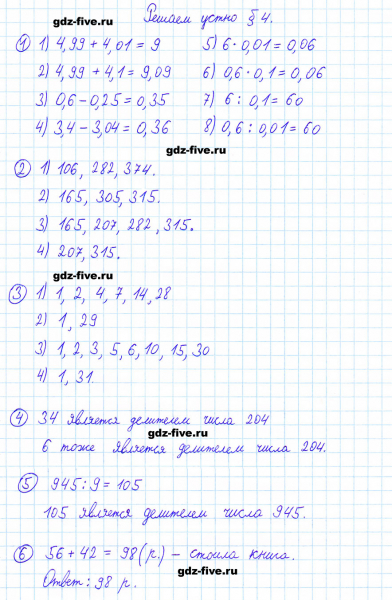 gdz-five.ru Решаем устно § 4.
① 1) 4,99 + 4,01 = 9 5) 6 · 0,01 = 0,06
2) 4,99 + 4,1 = 9,09 6) 0,6 · 0,1 = 0,06
3) 0,6 - 0,25 = 0,35 7) 6 : 0,1 = 60
4) 3,4 - 3,04 = 0,36 8) 0,6 : 0,01 = 60
gdz-five.ru
② 1) 106, 282, 374.
2) 165, 305, 315.
3) 165, 207, 282, 315.
4) 207, 315.
gdz-five.ru
③ 1) 1, 2, 4, 7, 14, 28
2) 1, 29
3) 1, 2, 3, 5, 6, 10, 15, 30
4) 1, 31.
④ 34 является делителем числа 204
gdz-five.ru
6 тоже является делителем числа 204.
⑤ 945 : 9 = 105
105 является делителем числа 945.
⑥ 56 + 42 = 98 (р.) – стоила книга.
gdz-five.ru
Ответ: 98 р.